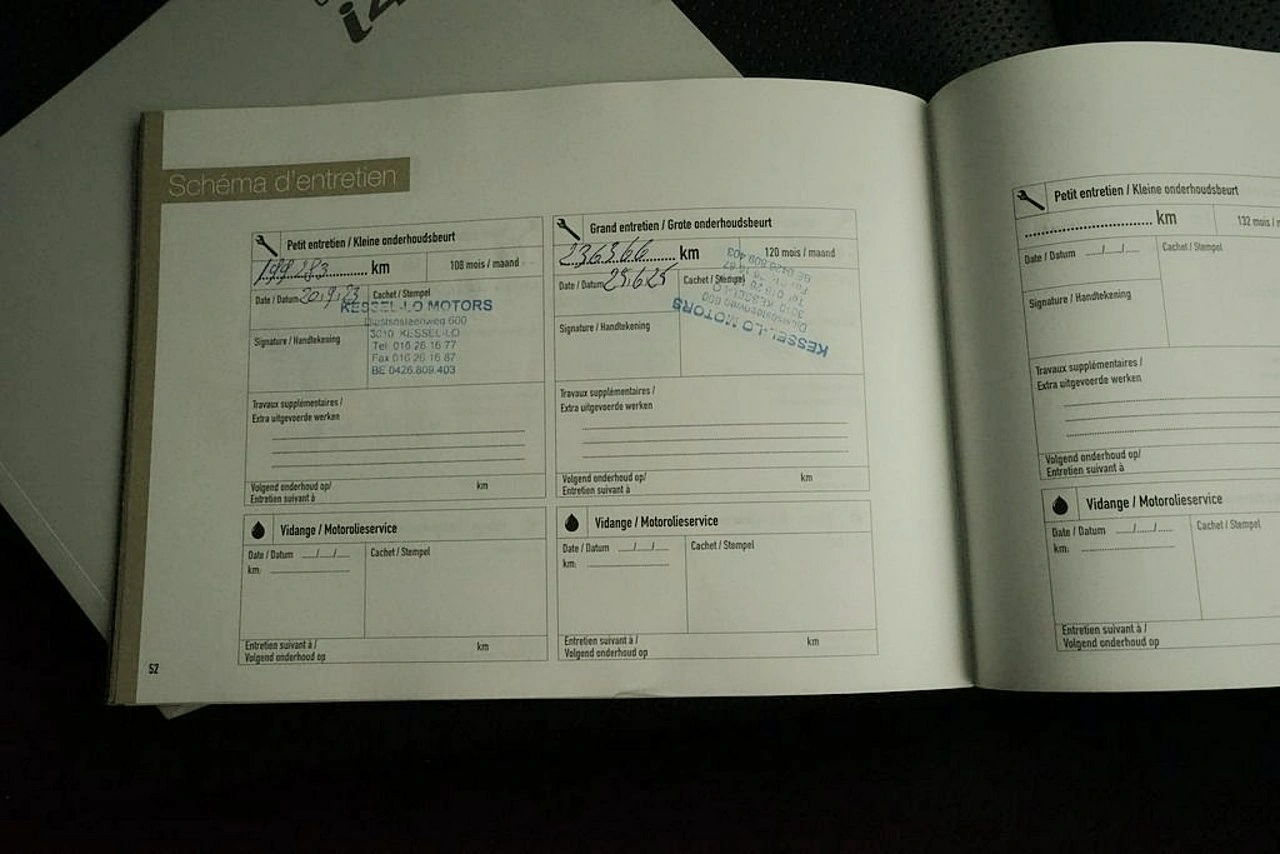 Schéma d'entretien
Petit entretien / Kleine onderhoudsbeurt
199283 km
108 mois / maand
Date / Datum 20.9.23
Cachet / Stempel
KESSEL-LO MOTORS
Diestsesteenweg 600
3010 KESSEL-LO
Tel 016 26 16 77
Fax 016 26 16 87
BE 0426.809.403
Signature / Handtekening
Travaux supplémentaires /
Extra uitgevoerde werken
Volgend onderhoud op/
Entretien suivant à
km
Grand entretien / Grote onderhoudsbeurt
236366 km
120 mois / maand
Date / Datum 25.6.25
Cachet / Stempel
KESSEL-LO MOTORS
Diestsesteenweg 600
3010 KESSEL-LO
BE 0426.809.403
Signature / Handtekening
Travaux supplémentaires /
Extra uitgevoerde werken
Volgend onderhoud op/
Entretien suivant à
km
Vidange / Motorolieservice
Date / Datum __/__/__
km:
Cachet / Stempel
Entretien suivant à /
Volgend onderhoud op
km
Vidange / Motorolieservice
Date / Datum __/__/__
km:
Cachet / Stempel
Entretien suivant à /
Volgend onderhoud op
km
52
Petit entretien / Kleine onderhoudsbeurt
km
132 mois /
Date / Datum __/__/__
Cachet / Stempel
Signature / Handtekening
Travaux supplémentaires /
Extra uitgevoerde werken
Volgend onderhoud op/
Entretien suivant à
Vidange / Motorolieservice
Date / Datum __/__/__
km:
Cachet / Stempel
Entretien suivant à /
Volgend onderhoud op